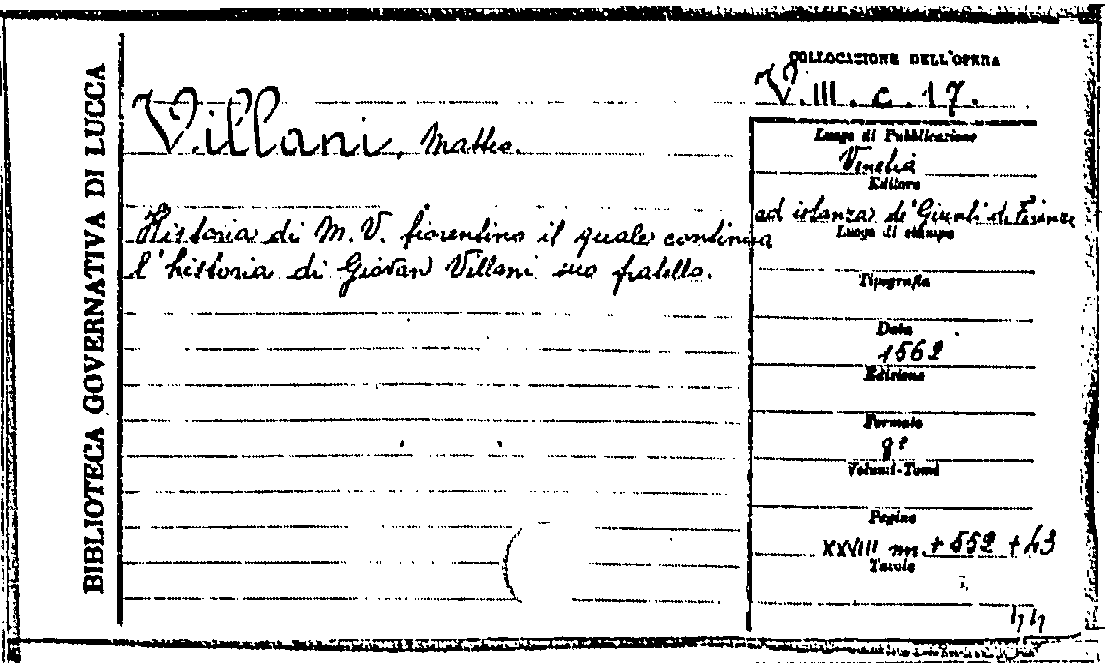 BIBLIOTECA GOVERNATIVA DI LUCCA
COLLOCAZIONE DELL'OPERA
V. III. c. 17.
Villani, Matteo.
Historia di M. V. fiorentino il quale continua
l'historia di Giovan Villani suo fratello.
Luogo di Pubblicazione
Venetia
Editore
ad istanza de' Giunti di Firenze
Luogo di stampa
Tipografia
Data
1562
Edizione
Formato
8°
Volumi-Tomi
Pagine
XXVIII nn + 552 + 43
Tavole